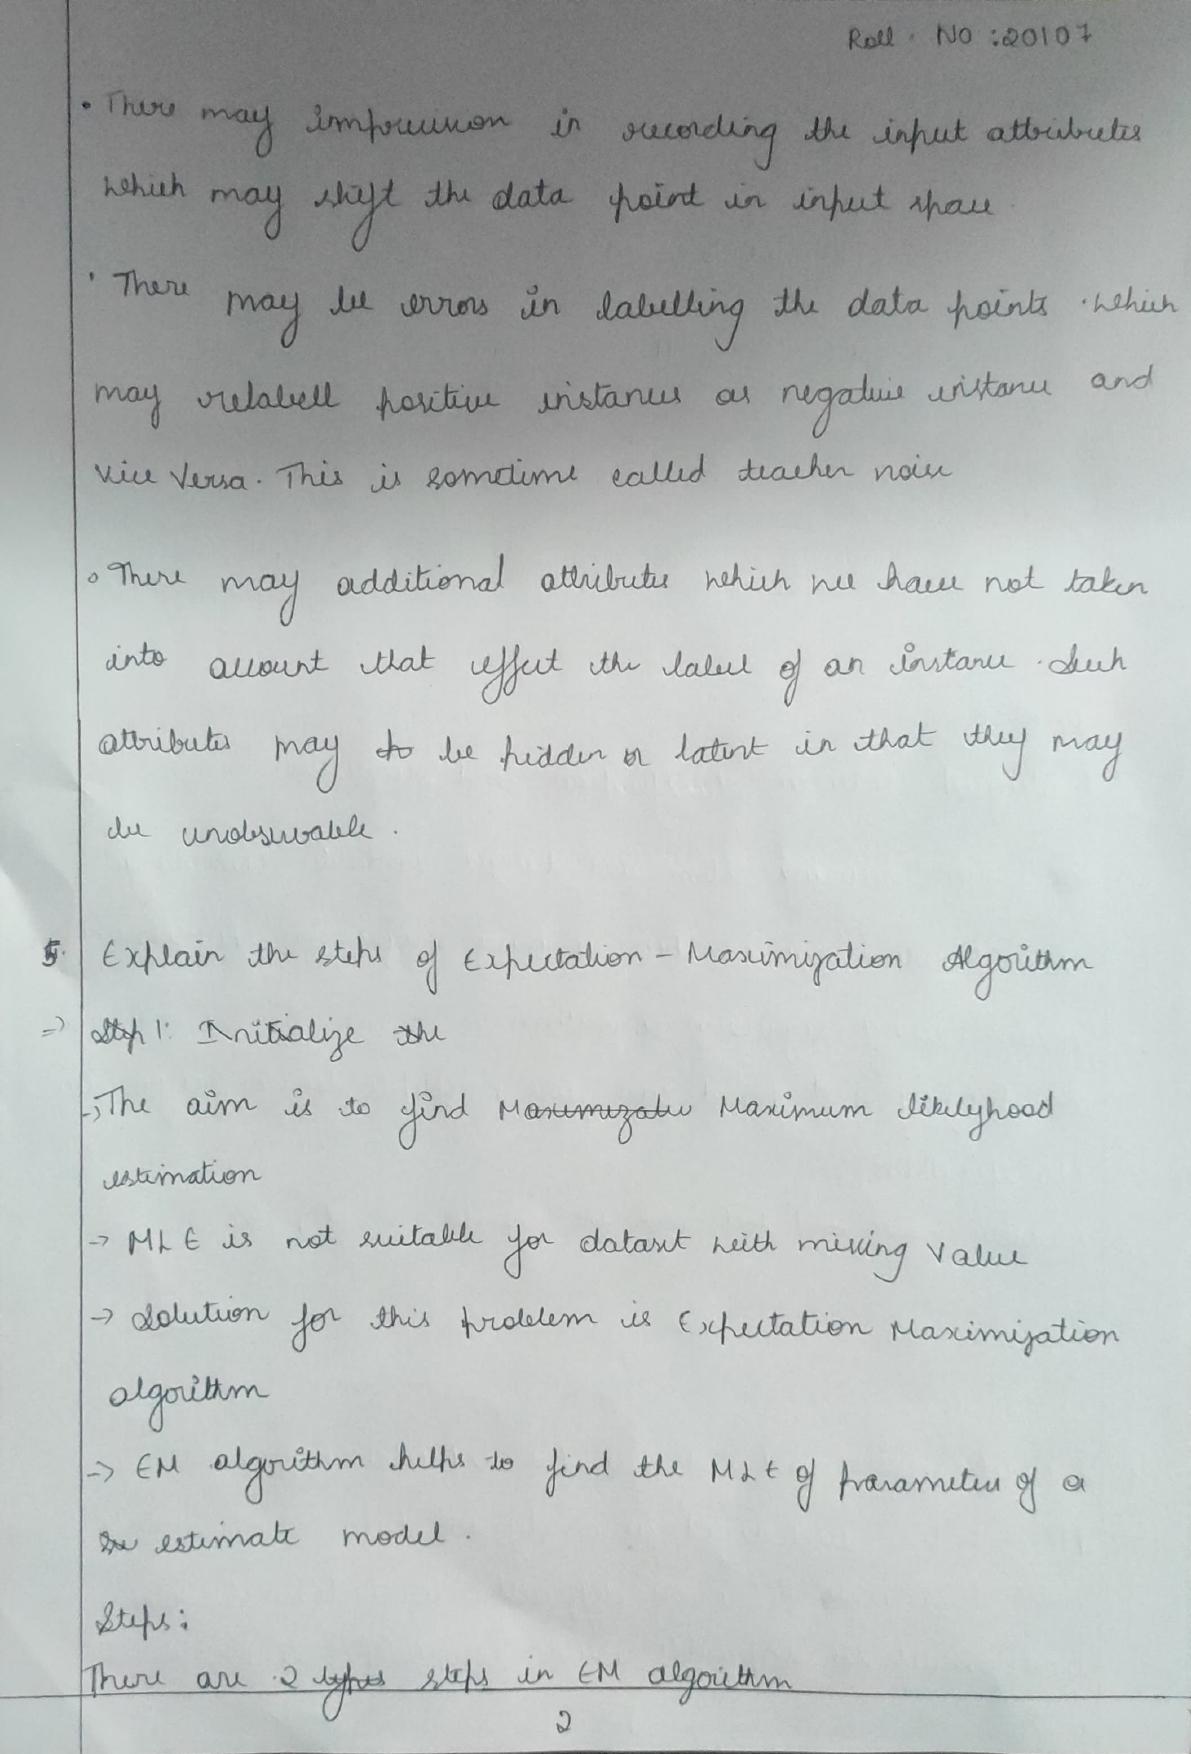 Roll. No :20107
• There may imprecision in recording the input attributes
which may shift the data point in input space.
• There may be errors in labelling the data points .which
may relabell positive instances as negative instance and
vice versa. This is sometime called teacher noise
• There may additional attributes which we have not taken
into account that effect the label of an instance. Such
attributes may to be hidden or latent in that they may
be unobservable.
5. Explain the steps of Expectation - Maximization Algorithm
=> Step 1: Initialize the
-> The aim is to find Maximizatio Maximum likelyhood
estimation
-> MLE is not suitable for dataset with missing value
-> Solution for this problem is Expectation Maximization
algorithm
-> EM algorithm helps to find the MLE of parameters of a
estimate model.
Steps:
There are 2 types steps in EM algorithm
2